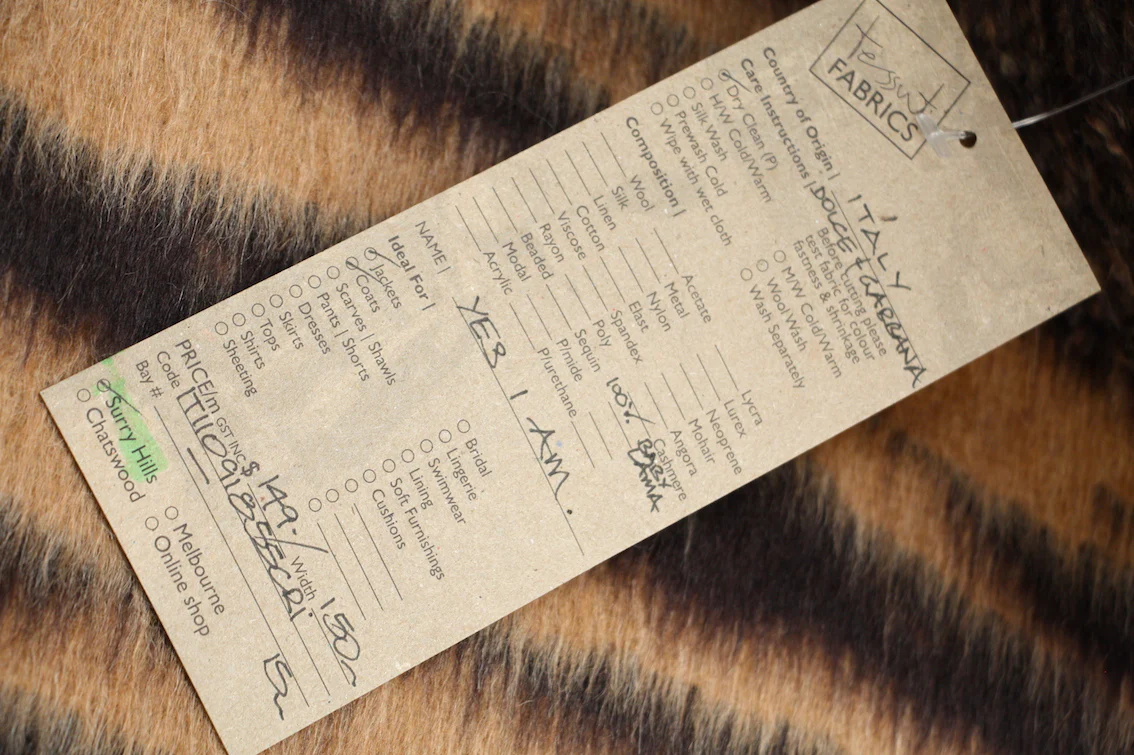 tessuti
FABRICS
Country of Origin | ITALY
Care Instructions | DOLCE & GABBANA
Dry Clean (P)
H/W Cold/Warm
Silk Wash
Prewash Cold
Wipe with wet cloth
Before cutting please
test fabric for colour
fastness & shrinkage
M/W Cold/Warm
Wool Wash
Wash Separately
Composition |
Wool
Silk
Linen
Cotton
Viscose
Rayon
Beaded
Modal
Acrylic
Acetate
Metal
Nylon
Elast
Spandex
Poly
Sequin
P/mide
P/urethane
Lycra
Lurex
Neoprene
Mohair
Angora
Cashmere
100% BABY
LAMA
NAME | YES I AM.
Ideal For |
Jackets
Coats
Scarves | Shawls
Pants | Shorts
Dresses
Skirts
Tops
Shirts
Sheeting
Bridal
Lingerie
Swimwear
Lining
Soft Furnishings
Cushions
PRICE/m GST INC $ 149.- Width 150
Code
Bay #
Surry Hills
Chatswood
Melbourne
Online shop